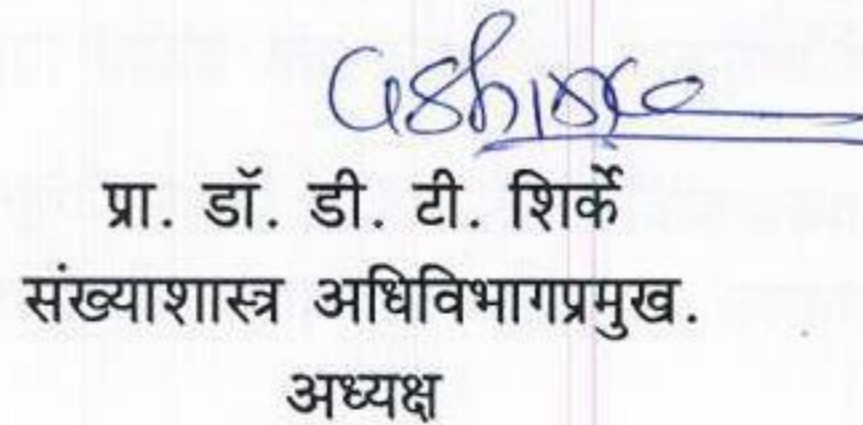 प्रा. डॉ. डी. टी. शिर्के
संख्याशास्त्र अधिविभागप्रमुख.
अध्यक्ष